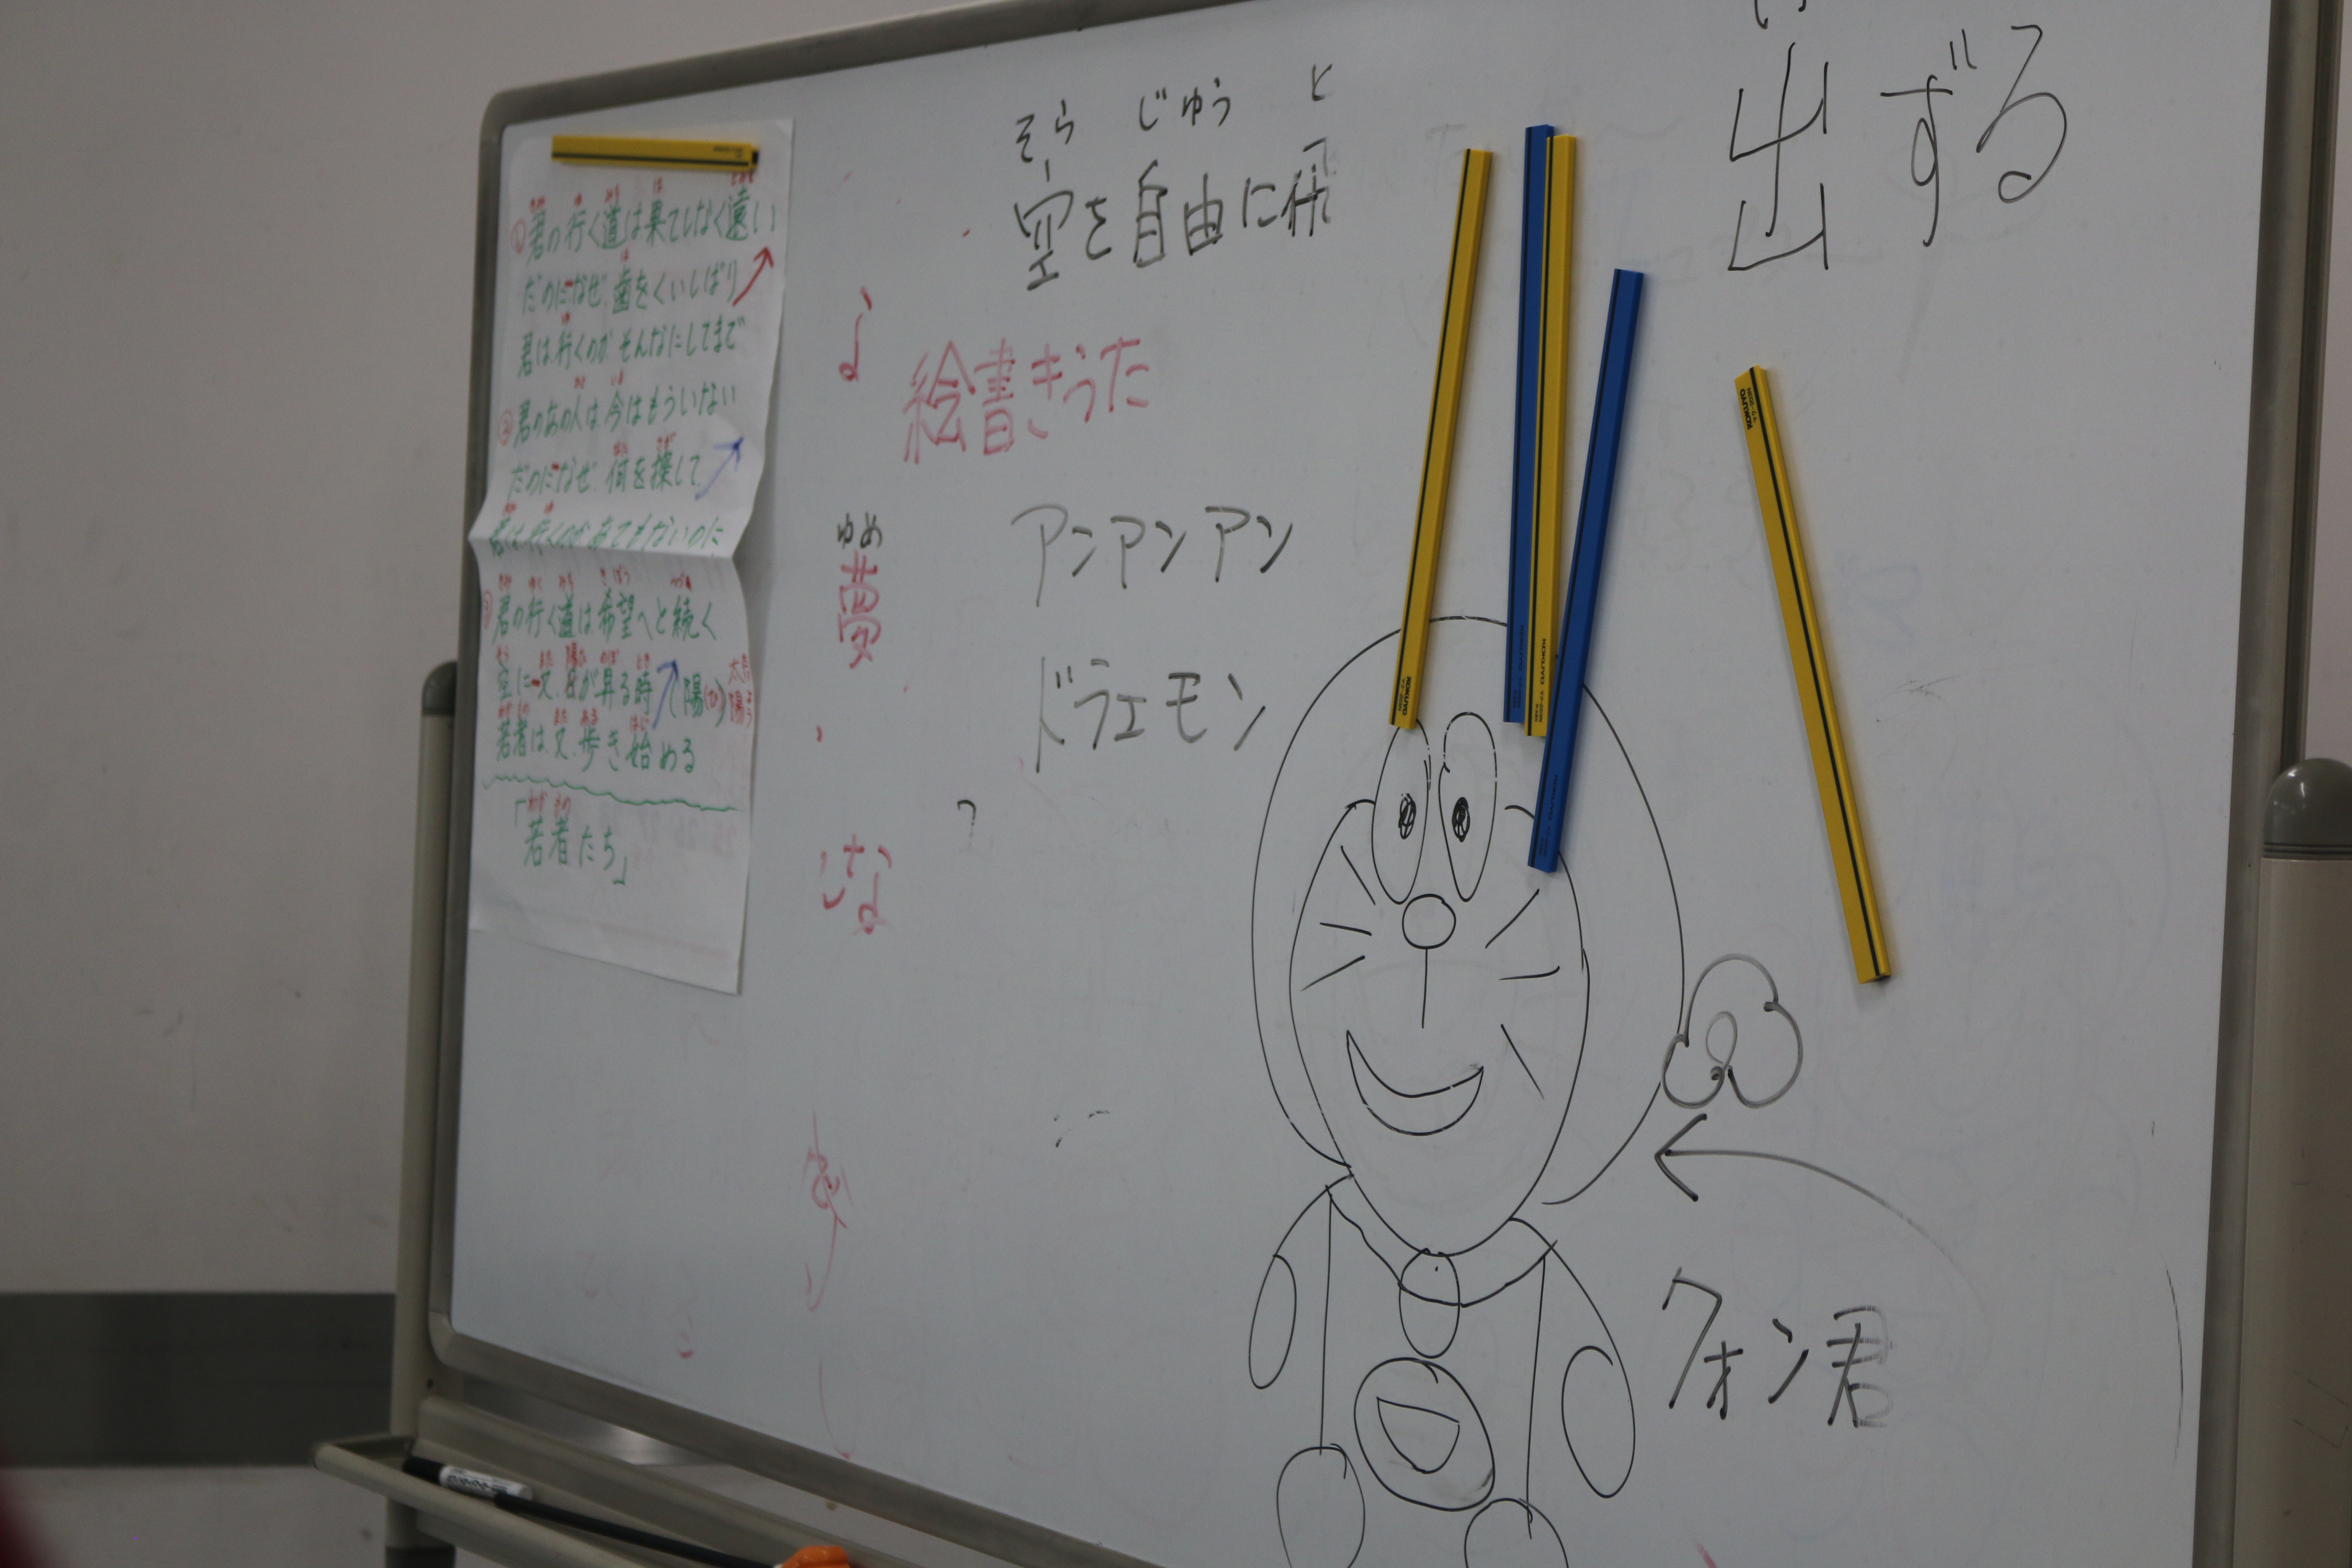 ①君の行く道は果てしなく遠い
だのになぜ歯をくいしばり
君は行くのかそんなにしてまで
②君のあの人は今はもういない
だのになぜ何を探して
君は行くのかあてもないのに
君の行く道は希望へと続く
空に又日が昇る時(陽)太陽
若者は又歩き始める
「若者たち」
そら じゅう と
空を自由に飛
絵書きうた
アンアンアン
ゆめ
夢
ドラエモン
な
出ずる
KOKUYO
KOKUYO
KOKUYO
クォン君